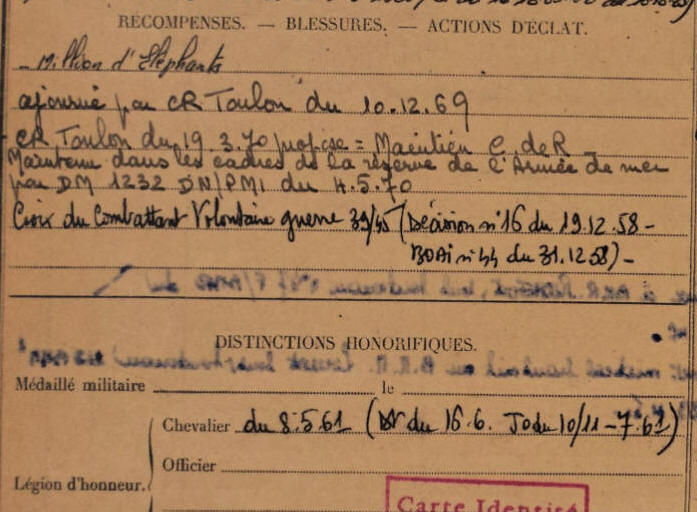 RÉCOMPENSES. — BLESSURES. — ACTIONS D'ÉCLAT.
— Million d'Eléphants
ajourné par CR Toulon du 10.12.69
CR Toulon du 19.3.70 propose = Maintien C. de R —
Maintenu dans les cadres de la réserve de l'Armée de mer
par DM 1232 DN/PM1 du 4.5.70
Croix du Combattant Volontaire guerre 39/45 (Décision n°16 du 19.12.58 —
BOAi n°44 du 31.12.58) —
DISTINCTIONS HONORIFIQUES.
Médaillé militaire le
Chevalier du 8.5.61 (du 16.6. JO du 10/11-7.61)
Officier
Légion d'honneur.
Carte Identité